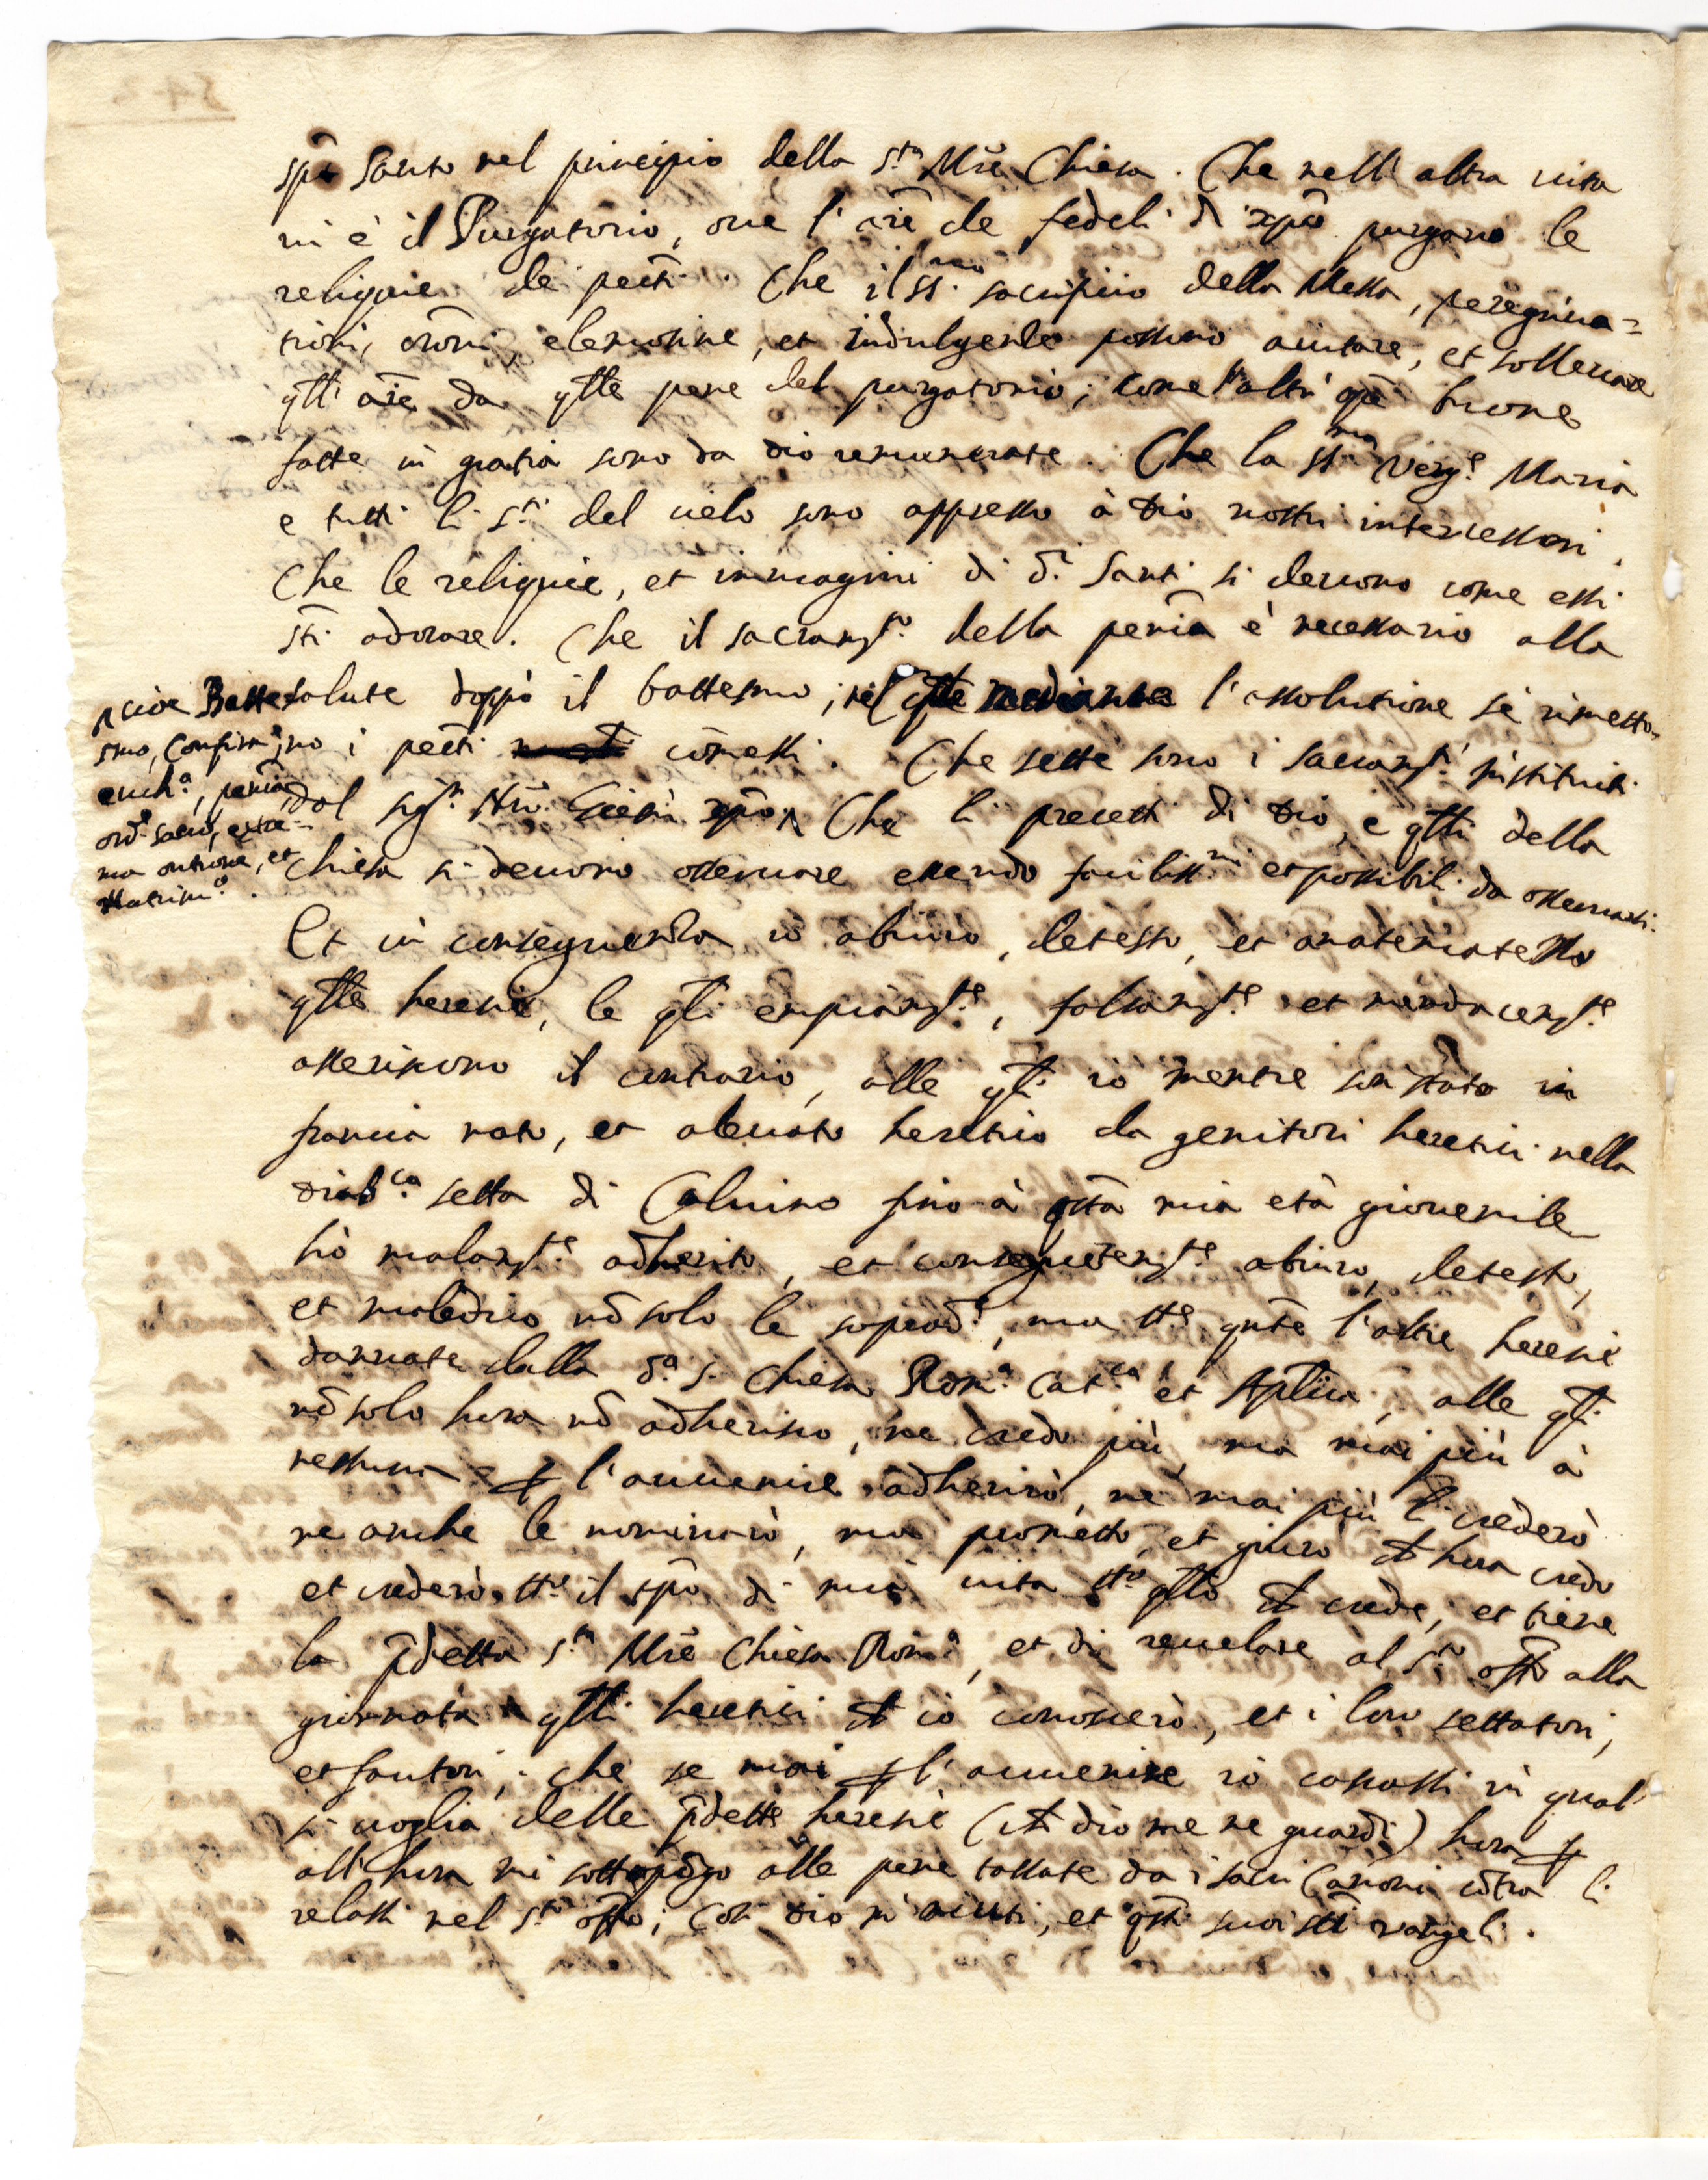 spō Santo nel principio della s.ta Mrē Chiesa. Che nell'altra uita
ui è il Purgatorio, oue l'aīe de fedeli di xpō purgano le
reliquie de peēti. Che il ss.mo sacrificio della Messa, peregrina=
tioni, orōni, elemosine, et indulgenze possono aiutare, et solleuare
qlli aīe da qlle pene del purgatorio; come l'altri opē buone
fatte in gratia sono da Dio remunerate. Che la ss.ma Verg.e Maria
e tutti li s.ti del cielo sono appresso à Dio nostri intercessori.
Che le reliquie, et immagini di d.i Santi si deuono come essi
sti adorare. Che il sacram.to della penīa è necessario alla
salute doppò il battesmo; nel qle mediante l'assolutione se rimetto-
no i peēti comessi. Che sette sono i sacram.ti instituiti
dal sig.r Nrō Giesù xpō ^ Che li precetti di Dio, e qlli della
^ cioè Batte
smo, Confirm.e,
euch.a, penīa,
ord.e sacro, estre-
ma ontione, et
Matrim.o.
Chiesa si deuono osseruare essendo faciliss.mi et possibili da osseruarsi.
Et in conseguenza io abiuro, detesto, et anatematezzo
qlle heresie, le qli empiam.te, falsam.te et mendacem.te
asseriscono il contrario, alle qli io mentre son stato in
francia nato, et aleuato heretico da genitori heretici nella
diab.ca setta di Caluino fino à qsta mia età giouenile
hò malam.te adherito, et conseguētem.te abiuro, detesto,
et maledico nō solo le soprad.e, ma tt.e qnte l'altre heresie
dannate dalla d.a s. Chiesa Rom.a Cat.ca et Aplica, alle qli
nō solo hora nō adherisco, ne credo più, ma mai più à
nessuna p l'auuenire adherirò, ne mai più li crederò
ne anche le nominarò, ma prometto, et giuro ch hora credo
et crederò tt.o il tpō di mia uita tt.o qllo ch crede, et tiene
la pdetta s.ta Mrē Chiesa Rom.a, et di reuelare al s.to offo alla
giornata qlli heretici ch io conoscerò, et i loro settatori,
et fautori; che se mai p l'auuenire io cascassi in qual
si uoglia delle pdette heresie (ch dio me ne guardi) hora p
all'hora mi sottopōgo alle pene tassate da i sacri Canoni cōtra li
relassi nel s.to offo; Cosi Dio m'aiuti, et qsti suoi sti vangeli.